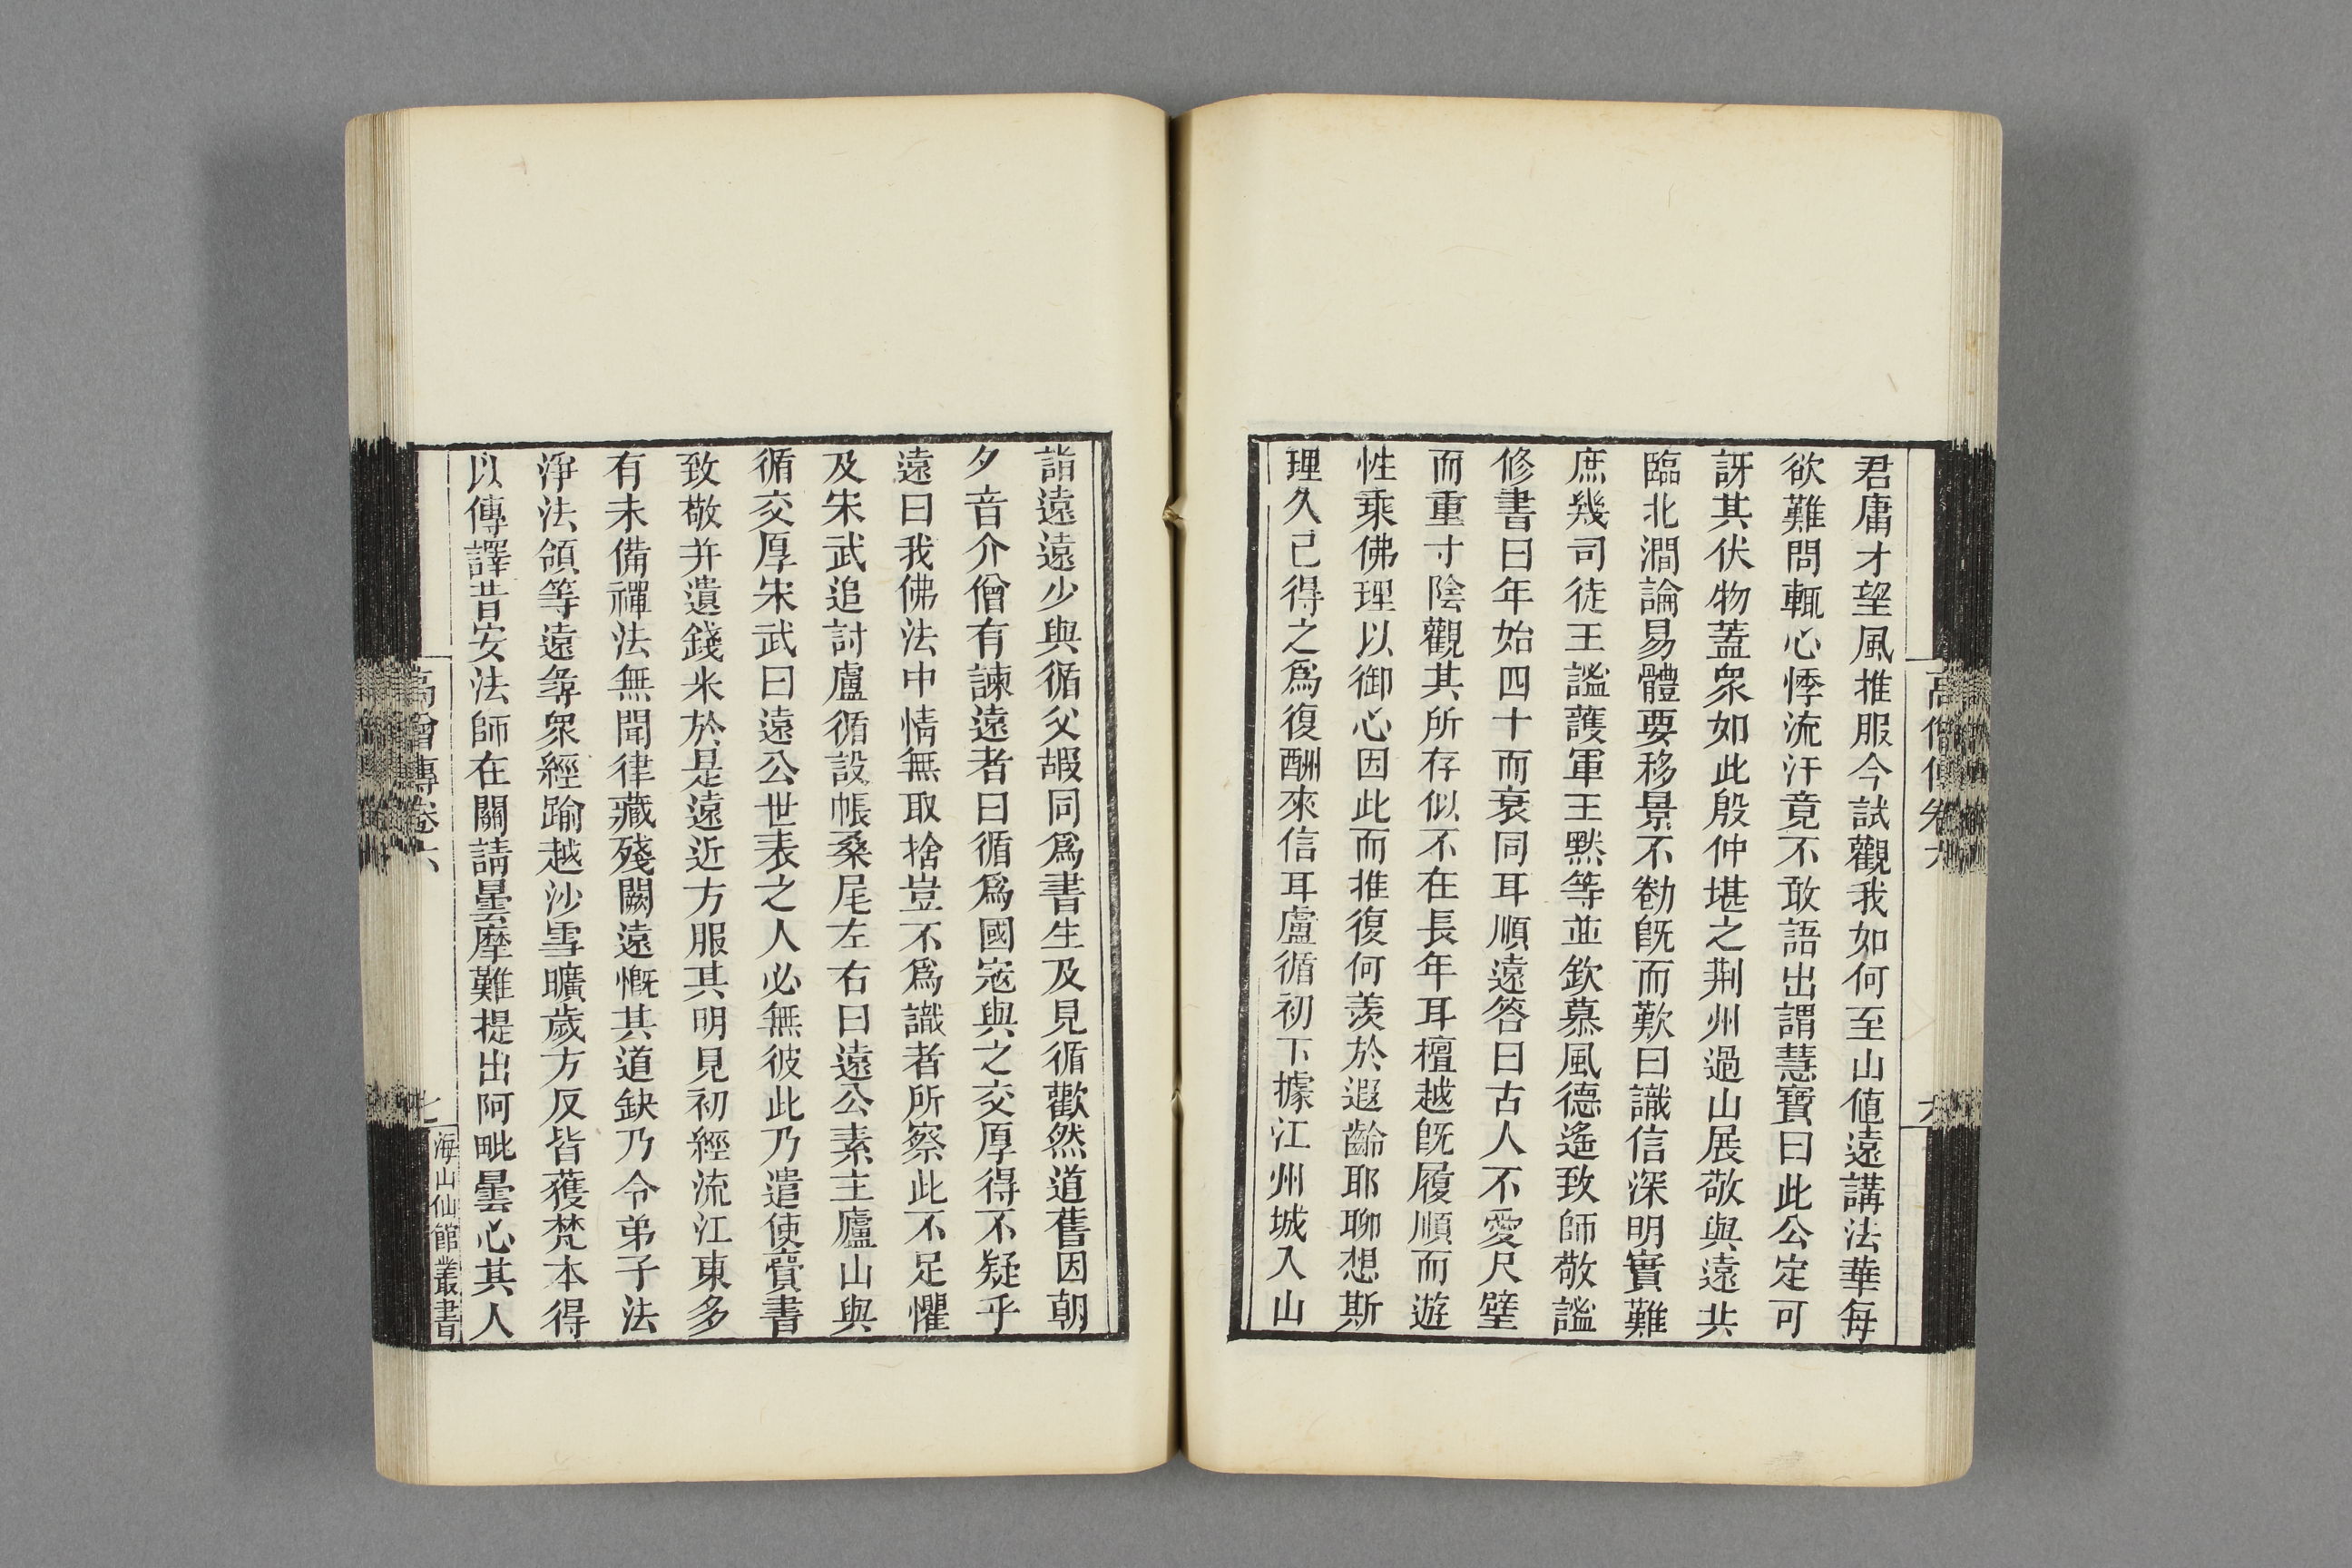 君庸才望風推服今試觀我如何至山值遠講法華每
欲難問輒心悸流汗竟不敢語出謂慧寶曰此公定可
訝其伏物蓋眾如此殷仲堪之荆州過山展敬與遠共
臨北澗論易體要移景不勌旣而歎曰識信深明實難
庶幾司徒王謐護軍王默等並欽慕風德遙致師敬謐
修書曰年始四十而衰同耳順遠答曰古人不愛尺璧
而重寸陰觀其所存似不在長年耳檀越旣履順而遊
性乘佛理以御心因此而推復何羨於遐齡耶聊想斯
理久已得之爲復酬來信耳盧循初下據江州城入山
詣遠遠少與循父嘏同爲書生及見循歡然道舊因朝
夕音介僧有諫遠者曰循爲國寇與之交厚得不疑乎
遠曰我佛法中情無取捨豈不爲識者所察此不足懼
及宋武追討盧循設帳桑尾左右曰遠公素主廬山與
循交厚宋武曰遠公世表之人必無彼此乃遣使齎書
致敬并遺錢米於是遠近方服其明見初經流江東多
有未備禪法無聞律藏殘闕遠慨其道缺乃令弟子法
淨法領等遠尋眾經踰越沙雪曠歲方反皆獲梵本得
以傳譯昔安法師在關請曇摩難提出阿毗曇心其人
高僧傳卷六
七
海山仙館叢書